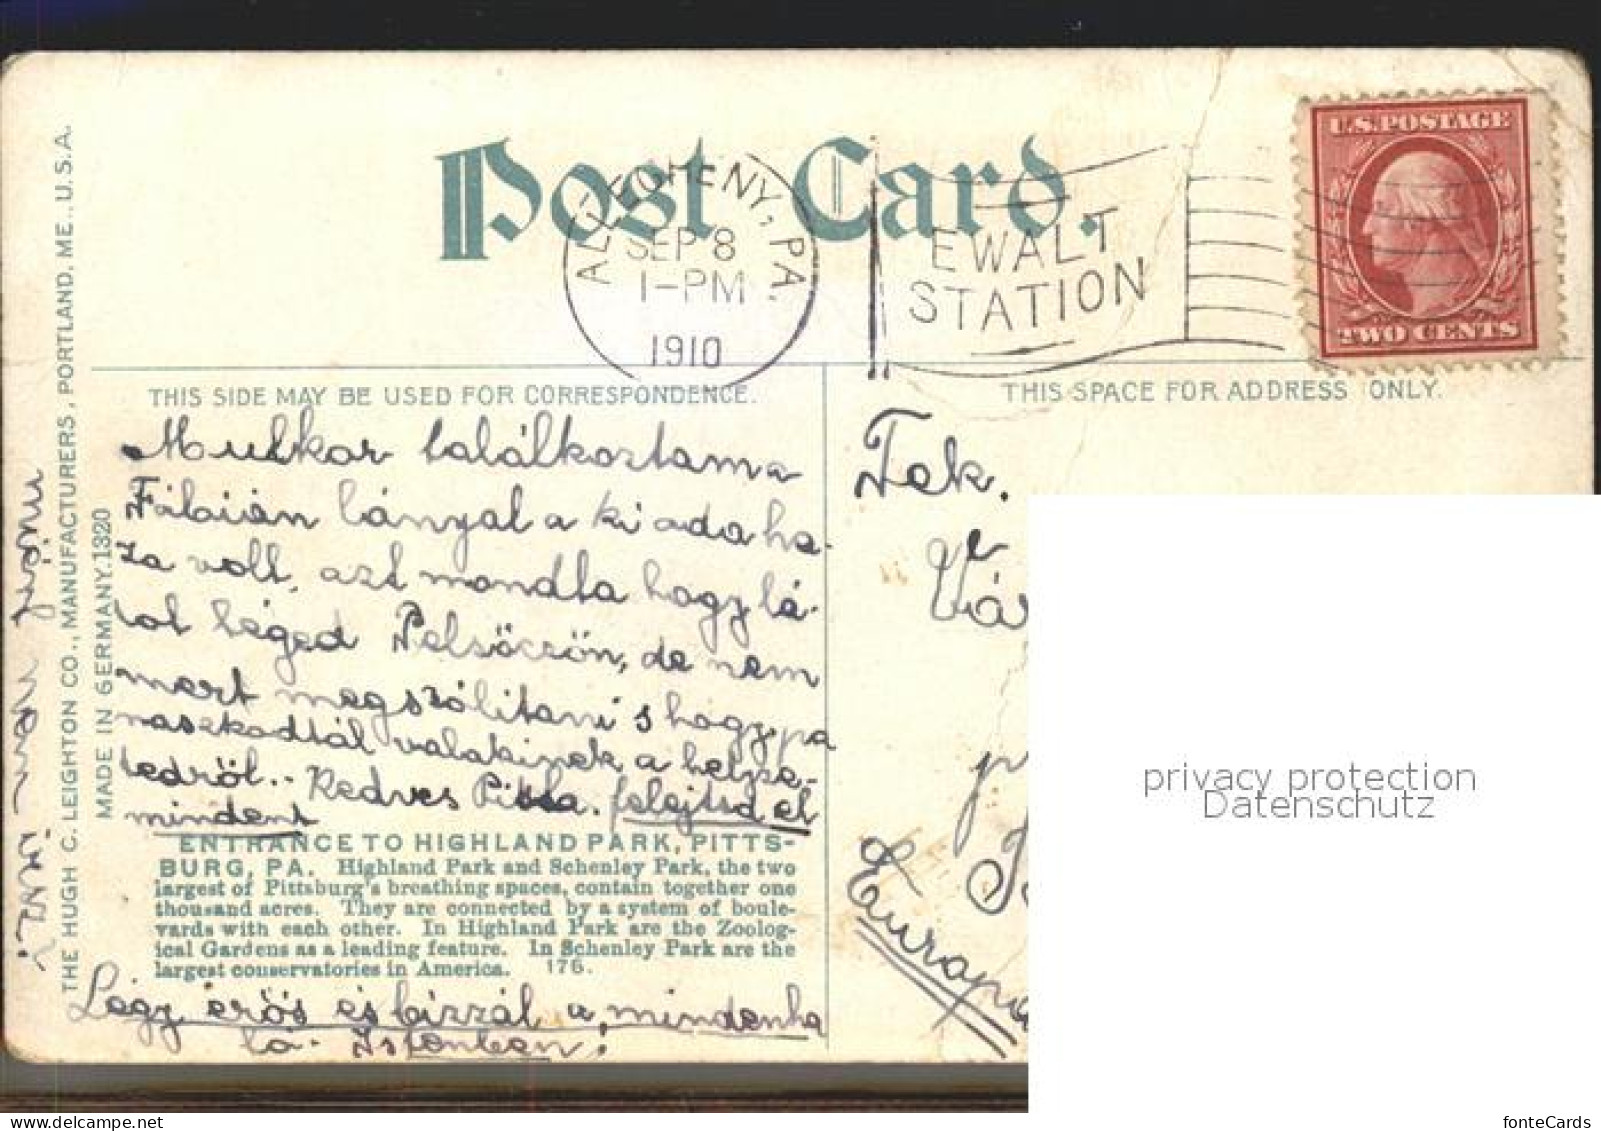 Post Card.
ALLEGHENY, PA.
SEP 8
1-PM
1910
EWALT
STATION
U.S. POSTAGE
TWO CENTS
THIS SIDE MAY BE USED FOR CORRESPONDENCE.
THIS SPACE FOR ADDRESS ONLY.
THE HUGH C. LEIGHTON CO., MANUFACTURERS, PORTLAND, ME., U.S.A.
MADE IN GERMANY. 1320
Multkor találkoztam a
Fábián lányal a ki oda ha-
za volt, azt mondta hogy lá-
tot téged Pelsőczön, de nem
mert megszólitani s hogy pa
naszkodtál valakinek a helyze-
tedről.. Kedves felejtsd el
mindent
ENTRANCE TO HIGHLAND PARK, PITTS-
BURG, PA. Highland Park and Schenley Park, the two
largest of Pittsburg's breathing spaces, contain together one
thousand acres. They are connected by a system of boule-
vards with each other. In Highland Park are the Zoolog-
ical Gardens as a leading feature. In Schenley Park are the
largest conservatories in America. 176.
Légy erős és bizzál a mindenha
tó Istenben!
Tek.
Vár
Europa
privacy protection
Datenschutz
fonteCards